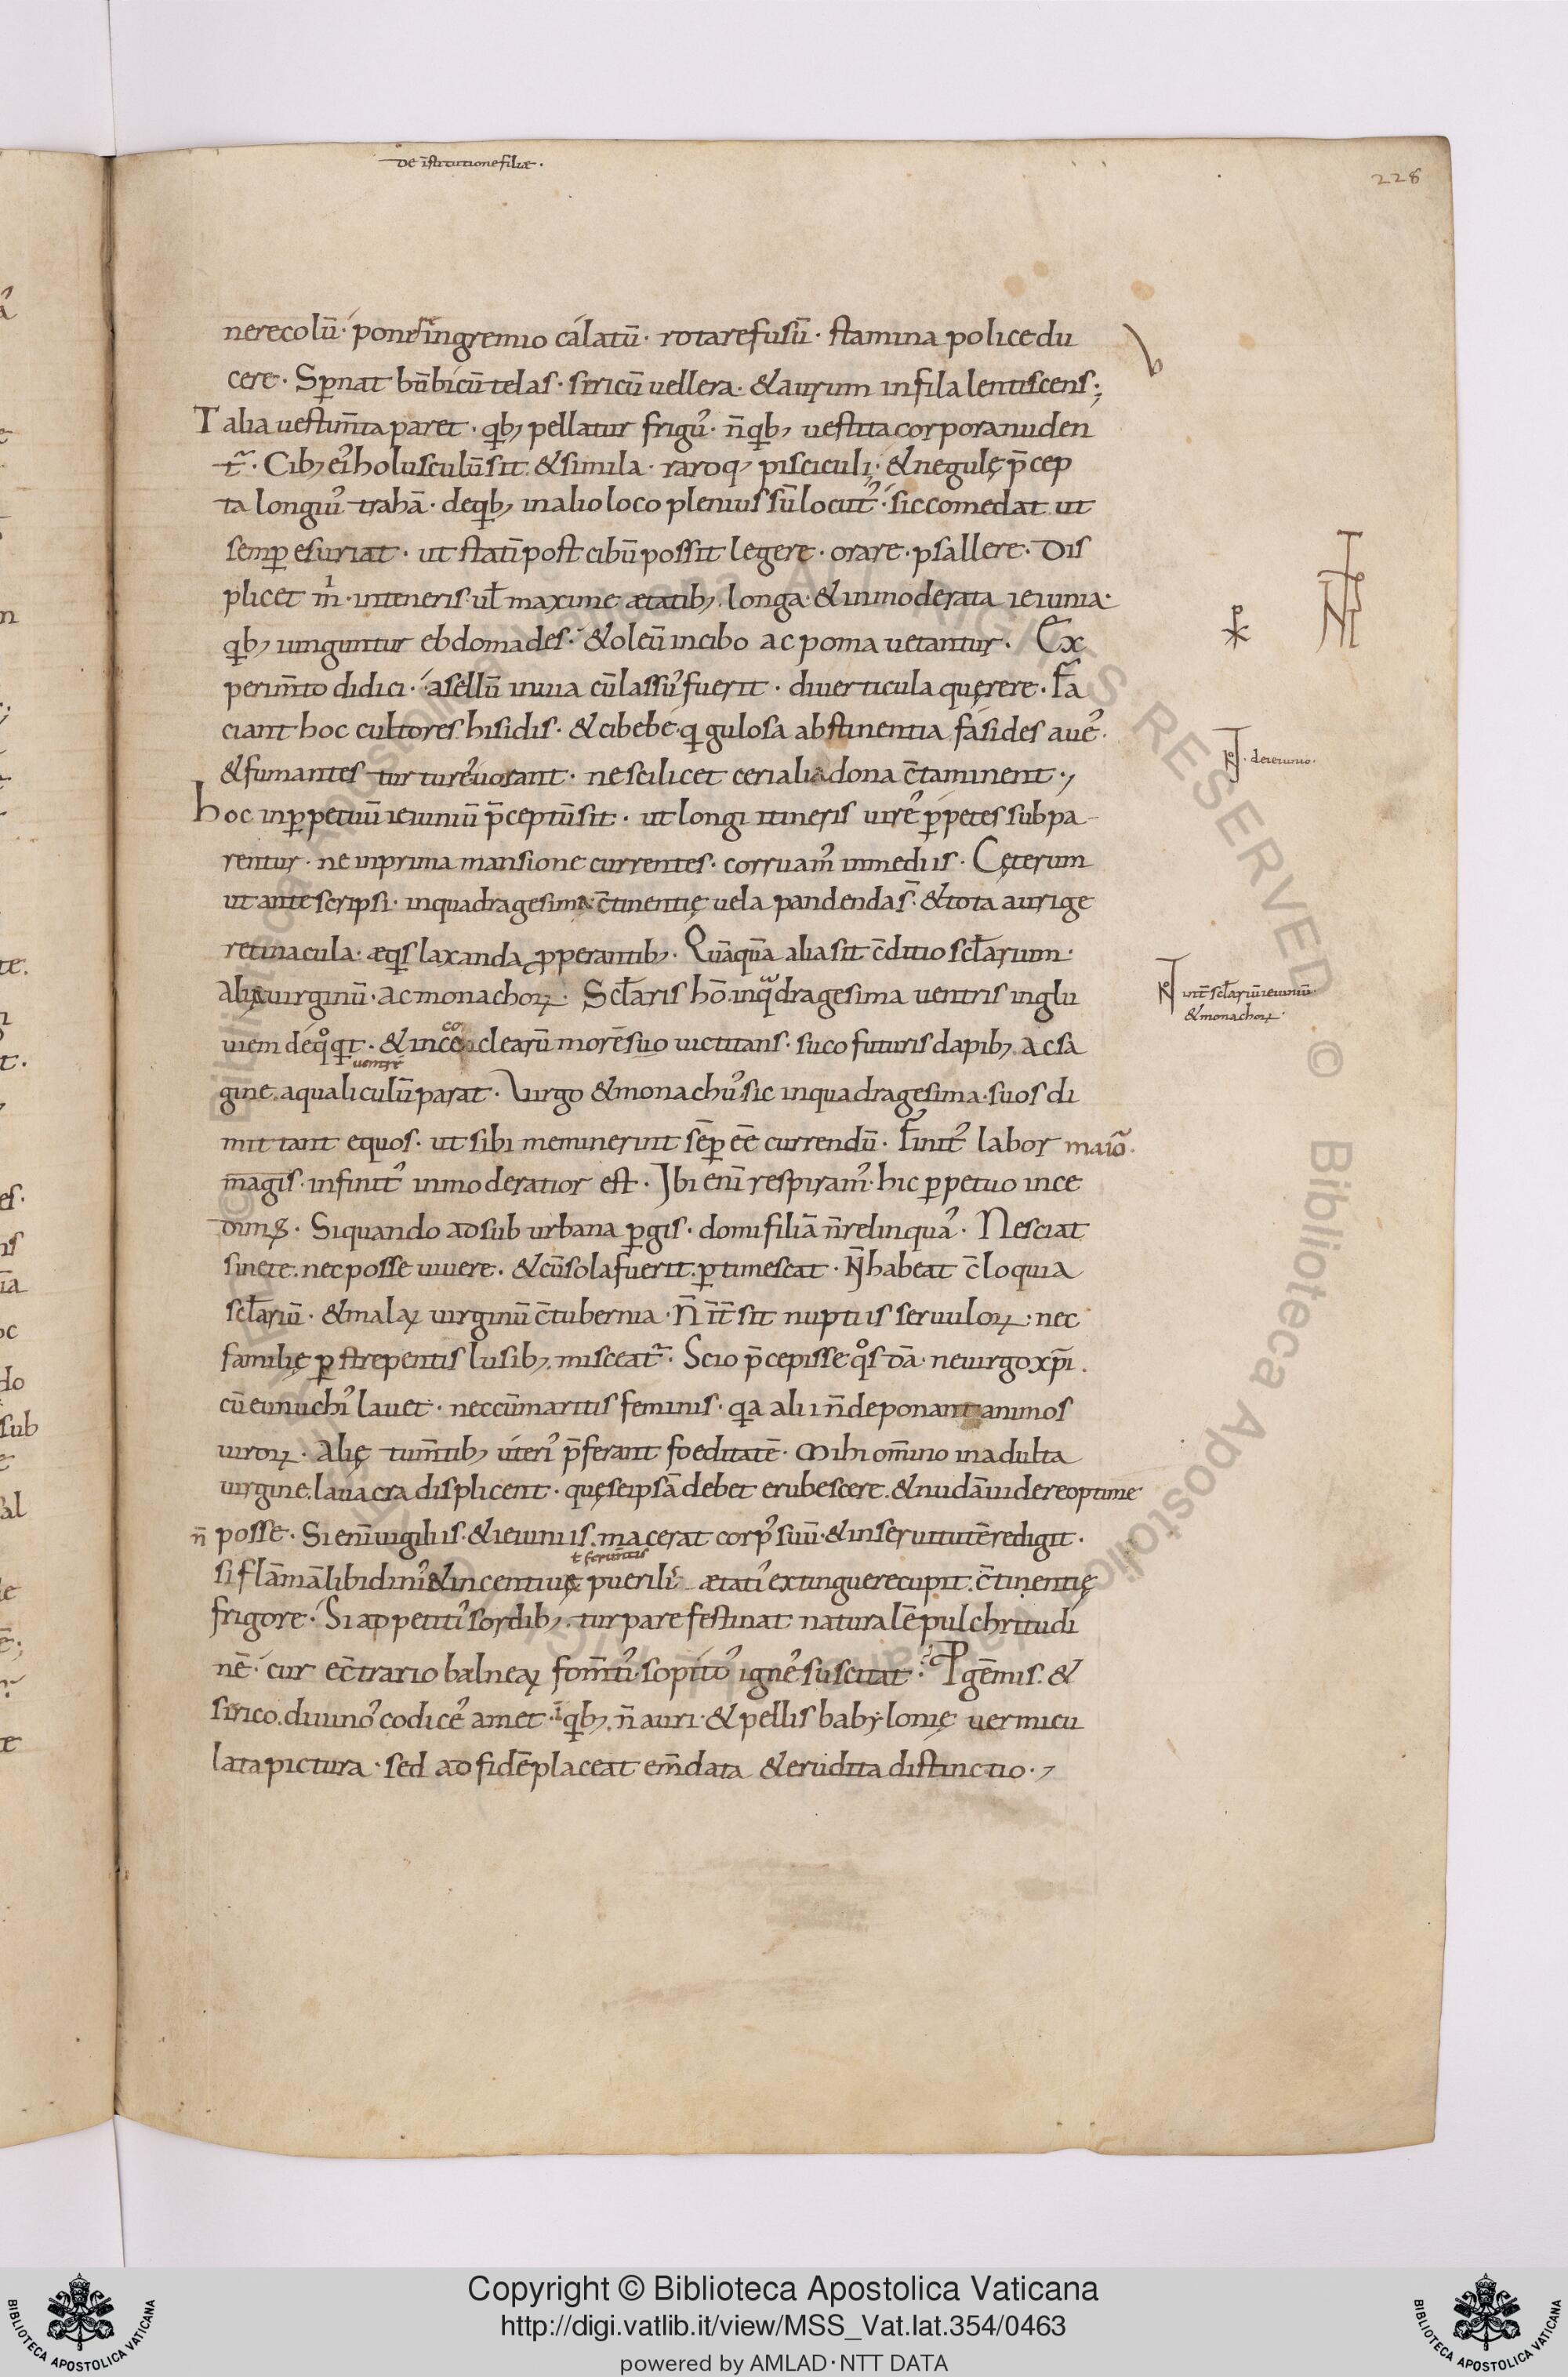 de īstitutione filiæ ·
228
nere colū · ponersingremio cálatū · rotare fusū · stamina police du
cere · Sꝑnat bn̄bicū telas · siricū uellera · & aurum in fila lentiscens ;
Talia uestim̄ta paret · qb; pellatur frigu᾽ · n̄ qb; uestita corpora nuden
t᷑ · Cib; ei᾽ holusculū sit · & simila · raroq; pisciculi · & ne gulę p̄cep
ta longiu᾽ trahā · de qb; in alio loco plenius sū locut᾽ · sic comedat ut
semꝑ esuriat · ut statī post cibū possit legere · orare · psallere · Dis
plicet m̄ · in teneris ul̄ maxime ætatib; longa & inmoderata ieiunia ·
qb; iunguntur ebdomades · & oleū in cibo ac poma uetantur · Ex
perim̄to didici · asellū in uia cū lassu᾽ fuerit · diuerticula quęrere · Fa
ciant hoc cultores hisidis · & cibebe · q gulosa abstinentia fásides aue᾽ ·
& fumantes turture᾽ uorant · ne scilicet cerialia dona c̄taminent ·,
hoc in ꝑpetuū ieiuniū p̄ceptū sit · ut longi itineris uire᾽ ꝑpetes subpa-
rentur · ne in prima mansione currentes · corruam᾽ in mediis · Cęterum
ut ante scripsi · in quadragesima c̄tinentię uela pandenda s̄ · & tota aurige
retinacula · æqis laxanda ꝓperantib; · Quāquā alia sit c̄ditio scl̄arium ·
alię uirginū · ac monachoꝝ · Scl̄aris hō in qdragesima uentris inglu
co
uiem deqoqit · & in ce clearū morē suo uictitans · suco futuris dapib; ac sa
uentrē
gine aqualiculū parat · Virgo & monachu᾽ sic in quadragesima suos di
mittant equos · ut sibi meminerint sēꝑ eē currendū · Finit᾽ labor maio᷑ ·
magis · infinit᾽ inmoderatior est · Ibi enī respiram᾽ · hic ꝑpetuo ince
dim᾽ · Si quando ad suburbana ꝑgis · domi filiā n̄ relinqua᾽ · Nesciat
sine te · nec posse uiuere · & cū sola fuerit ꝑtimescat · N̄ habeat c̄loquia
scl̄ariū · & malaꝝ uirginū c̄tubernia · N̄ īt̄sit nuptiis seruuloꝝ · nec
familię ꝑstrepentis lusib; misceat᷑ · Scio p̄cepisse qos dā · ne uirgo xp̄i
cū eunuchi᾽ lauet · nec cū maritis feminis · qa alii n̄ deponant animos
uiroꝝ · Alię tum̄tib; uteri᾽ p̄ferant foeditatē · Mihi om̄ino in adulta
uirgine lauacra displicent · quę se ipsā debet erubescere · & nudā uidere optime
n̄ posse · Si enī uigiliis · & ieiuniis macerat corp᾽ suū · & in seruitutē redigit ·
ł feruentis
si flāmā libidini᾽ & incentiuę puerili᾽ ætati᾽ extinguere cupit c̄tinentię
frigore · Si appetiti᾽ sordib; turpare festinat naturalē pulchritudi
nē · cur ec̄trario balneaꝝ fom̄ti᾽ sopito᾽ igne᾽ suscitat · P gēmis · &
sirico diuino᾽ codice᾽ amet · ī qb; n̄ auri · & pellis babylonię uermicu
lata pictura · sed ad fidē placeat em̄data & erudita distinctio ·,
de ieiunio ·
int̄ scl̄ariū ieiuniū
& monachoꝝ ·
Copyright © Biblioteca Apostolica Vaticana
http://digi.vatlib.it/view/MSS_Vat.lat.354/0463
powered by AMLAD · NTT DATA
BIBLIOTECA APOSTOLICA VATICANA
BIBLIOTECA APOSTOLICA VATICANA